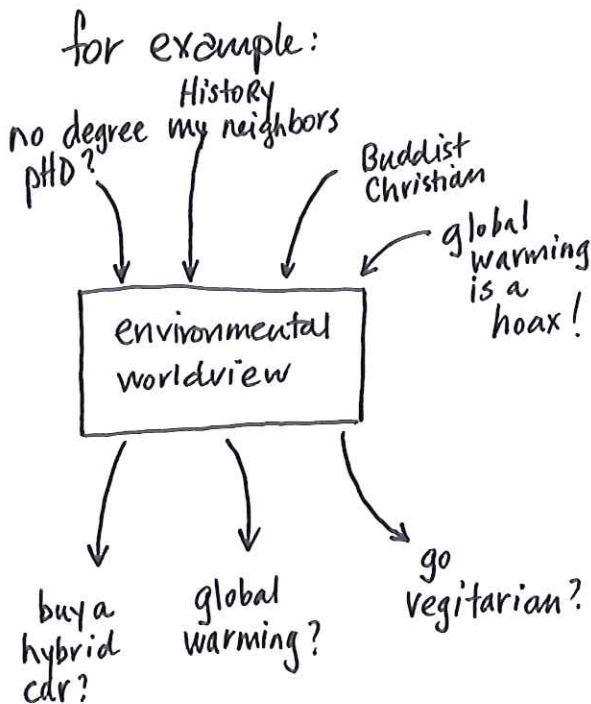 for example:
no degree
pHD?
HistoRy
my neighbors
Buddist
Christian
global
warming
is a
hoax!
environmental
worldview
buy a
hybrid
car?
global
warming?
go
vegitarian?